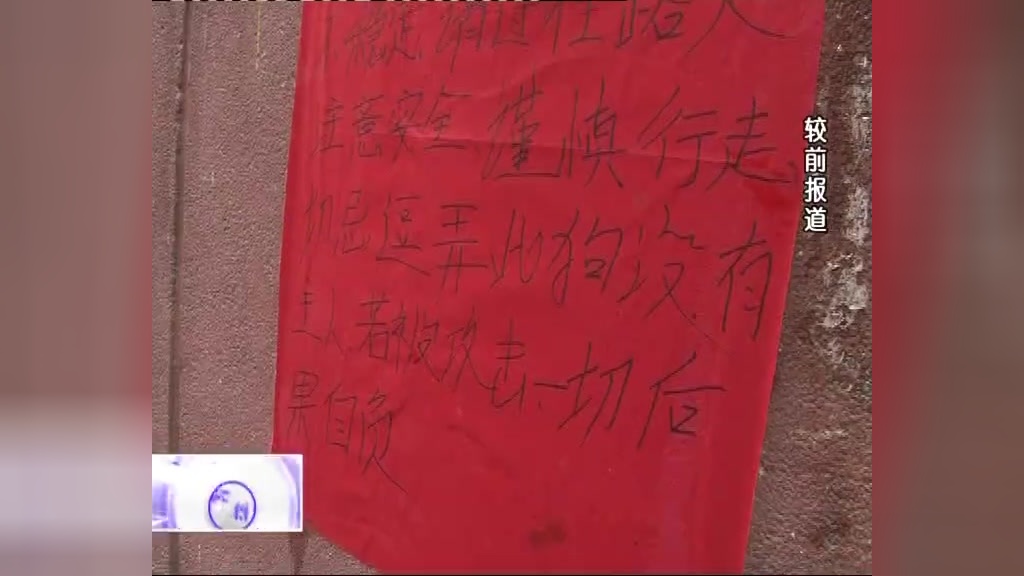 请过往路人
注意安全谨慎行走
切忌逗弄此狗没有
主人若被攻击一切后
果自负
较前报道